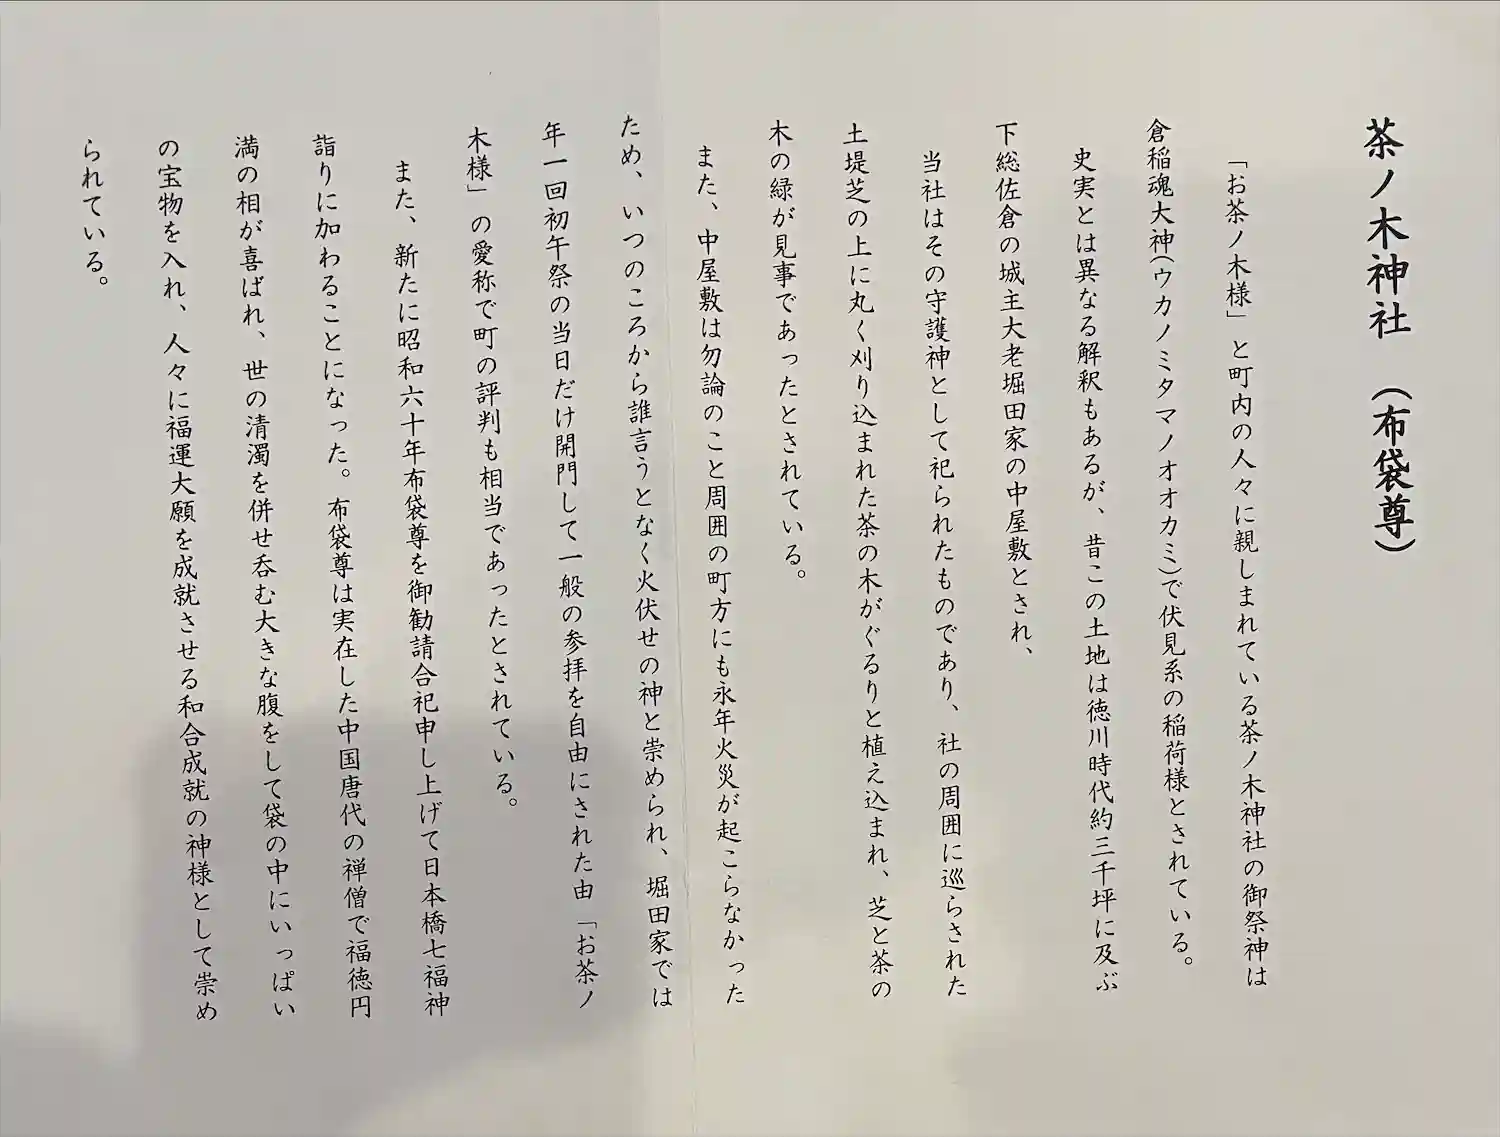 茶ノ木神社　（布袋尊）
「お茶ノ木様」と町内の人々に親しまれている茶ノ木神社の御祭神は
倉稲魂大神（ウカノミタマノオオカミ）で伏見系の稲荷様とされている。
史実とは異なる解釈もあるが、昔この土地は徳川時代約三千坪に及ぶ
下総佐倉の城主大老堀田家の中屋敷とされ、
当社はその守護神として祀られたものであり、社の周囲に巡らされた
土堤芝の上に丸く刈り込まれた茶の木がぐるりと植え込まれ、芝と茶の
木の緑が見事であったとされている。
また、中屋敷は勿論のこと周囲の町方にも永年火災が起こらなかった
ため、いつのころから誰言うとなく火伏せの神と崇められ、堀田家では
年一回初午祭の当日だけ開門して一般の参拝を自由にされた由「お茶ノ
木様」の愛称で町の評判も相当であったとされている。
また、新たに昭和六十年布袋尊を御勧請合祀申し上げて日本橋七福神
詣りに加わることになった。布袋尊は実在した中国唐代の禅僧で福徳円
満の相が喜ばれ、世の清濁を併せ呑む大きな腹をして袋の中にいっぱい
の宝物を入れ、人々に福運大願を成就させる和合成就の神様として崇め
られている。